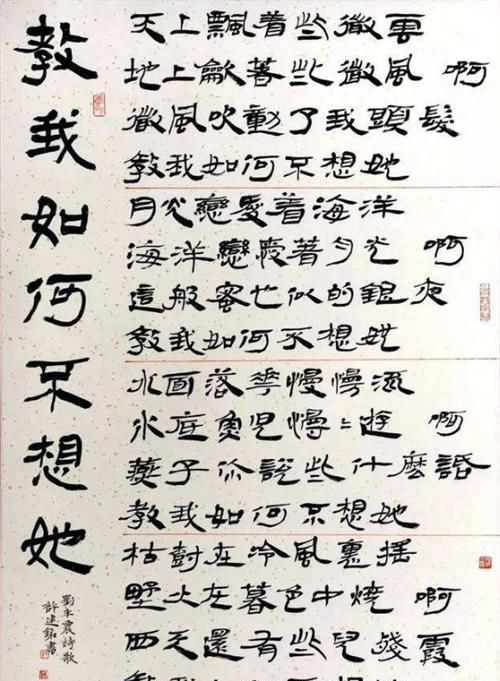 教我如何不想她
天上飄着些微雲
地上龡著些微風 啊
微風吹動了我頭髮
教我如何不想她
月光戀愛着海洋
海洋戀愛著月光 啊
這般蜜也似的銀夜
教我如何不想她
水面落花慢慢流
水底魚兒慢慢遊 啊
燕子你說些什麼話
教我如何不想她
枯樹在冷風裏搖
野火在暮色中燒 啊
西天還有些兒殘霞
教我如何不想她
劉半農詩歌
許建銘書